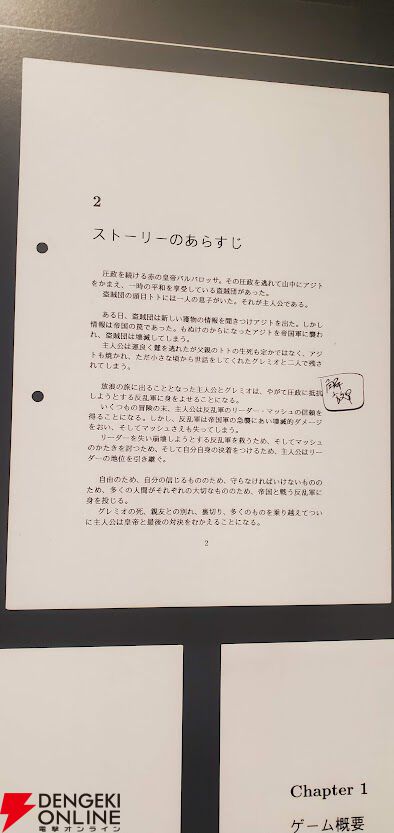 2
ストーリーのあらすじ
圧政を続ける赤の皇帝バルバロッサ。その圧政を逃れて山中にアジト
をかまえ、一時の平和を享受している盗賊団があった。
盗賊団の頭目トトには一人の息子がいた。それが主人公である。
ある日、盗賊団は新しい獲物の情報を聞きつけアジトを出た。しかし
情報は帝国の罠であった。もぬけのからになったアジトを帝国軍に襲わ
れ、盗賊団は壊滅してしまう。
主人公は運良く難を逃れたが父親のトトの生死も定かではなく、アジ
トも焼かれ、ただ小さな頃から世話をしてくれたグレミオと二人で残さ
れてしまう。
放浪の旅に出ることとなった主人公とグレミオは、やがて圧政に抵抗
しようとする反乱軍に身をよせることになる。
いくつもの冒険の末、主人公は反乱軍のリーダー・マッシュの信頼を
得ることになる。しかし、反乱軍は帝国軍の急襲にあい壊滅的ダメージ
をおい、そしてマッシュさえも失ってしまう。
リーダーを失い崩壊しようとする反乱軍を救うため、そしてマッシュ
のかたきを討つため、そして自分自身の決着をつけるため、主人公はリー
ダーの地位を引き継ぐ。
自由のため、自分の信じるもののため、守らなければいけないものの
ため、多くの人間がそれぞれの大切なもののため、帝国と戦う反乱軍に
身を投じる。
グレミオの死、親友との別れ、裏切り、多くのものを乗り越えてつい
に主人公は皇帝と最後の対決をむかえることになる。
2
Chapter 1
ゲーム概要
DENGEKI
ONLINE
電撃オンライン